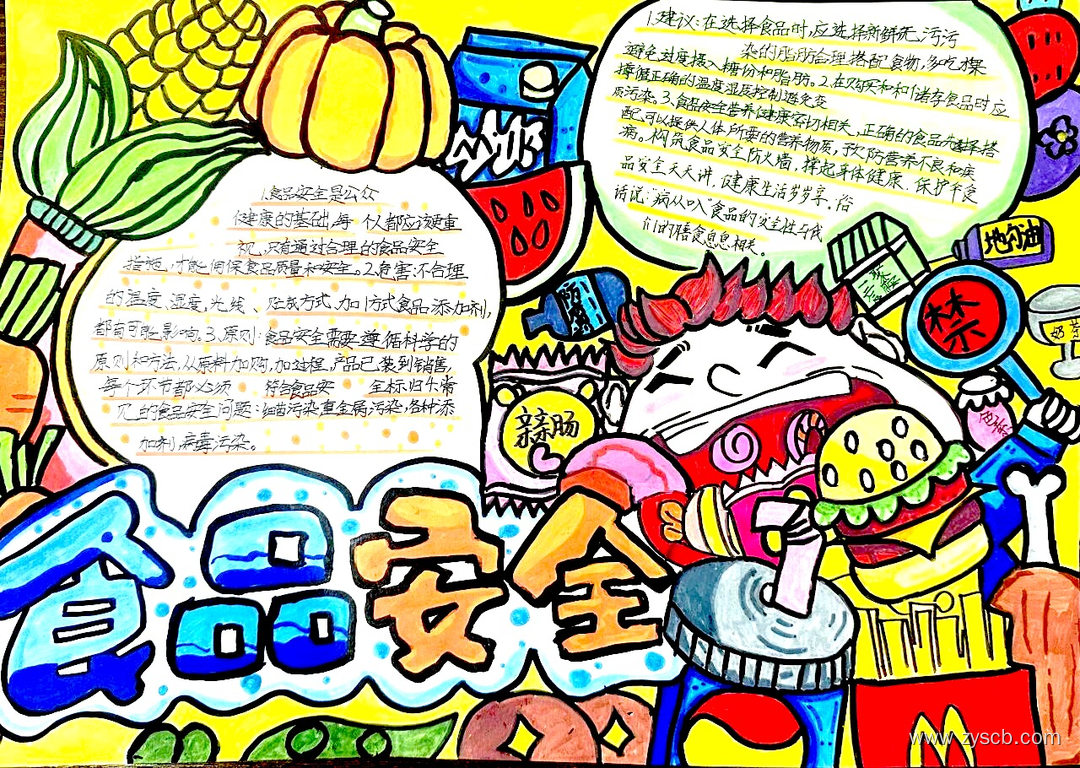 1.食品安全是公众
健康的基础,每一个人都应该重
视,只有通过合理的食品安全
措施,才能确保食品质量和安全。2.危害:不合理
的温度、湿度,光线、贮藏方式、加工方式食品添加剂,
都有可能影响.3.原则:食品安全需要遵循科学的
原则和方法,从原料加购,加过程,产品已装到销售,
每个环节都必须 符合食品安 全标归4.常
见的食品安全问题:细菌污染重金属污染,各种添
加剂,病毒污染。
1.建议:在选择食品时,应选择新鲜无污污
染的脂肪合理搭配食物,多吃果
避免过度摄入糖份和脂肪。2.在购买和和储存食品时应
遵循正确的温度湿度控制避免变
质污染。3.食品安全营养健康密切相关,正确的食品选择搭
配,可以提供人体所要的营养物质,预防营养不良和疾
病。构筑食品安全防火墙,撑起身体健康、保护伞食
品安全天天讲,健康生活岁岁享,俗
话说:“病从口入”食品的安全性与我
们的膳食息息相关。
牛奶
防腐
地沟油
禁
奶茶
辣肠
色
食品安全
www.zyscb.com